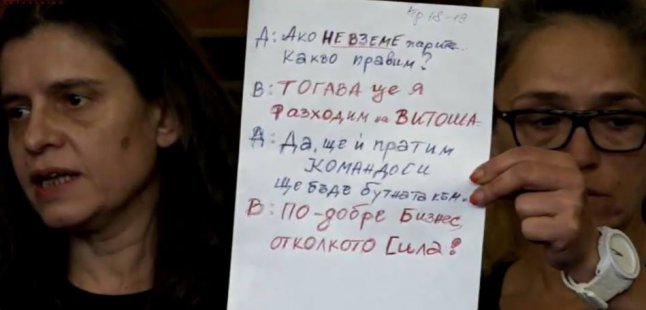 стр 18-19
Д: Ако НЕ ВЗЕМЕ парите..
Какво правим?
В: ТОГАВА ще Я
РАЗХОДИМ на ВИТОША
Д: Да, ще ѝ пратим
КОМАНДОСИ
ще бъде бутната към..
В: ПО-добре Бизнес,
отколкото Сила?